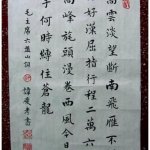 高雲淡望斷南飛雁不
好漢屈指行程二萬六
高峰旄頭漫卷西風今日
手何時縛住蒼龍
毛主席六盤山詞
書